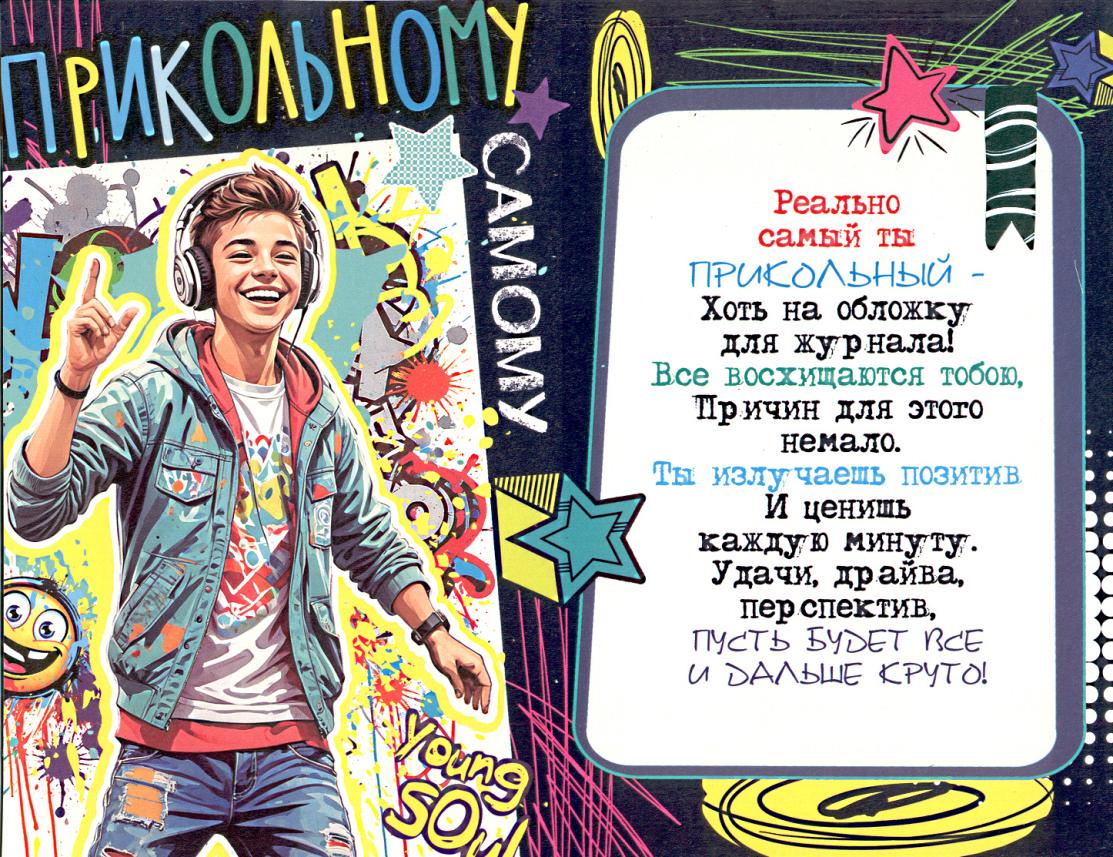 ПРИКОЛЬНОМУ
САМОМУ
young
soul
Реально
самый ты
ПРИКОЛЬНЫЙ -
Хоть на обложку
для журнала!
Все восхищаются тобою,
Причин для этого
немало.
Ты излучаешь позитив
И ценишь
каждую минуту.
Удачи, драйва,
перспектив,
ПУСТЬ БУДЕТ ВСЕ
И ДАЛЬШЕ КРУТО!